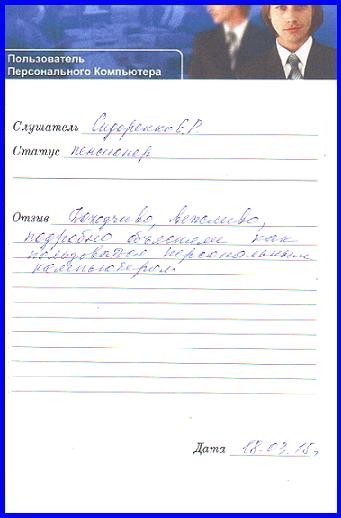 Пользователь
Персонального Компьютера
Слушатель Сидоренко Е.Р
Статус пенсионер
Отзыв Доходчиво, вежливо,
подробно объяснили как
пользоваться персональным
компьютером.
Дата 18.03.15г